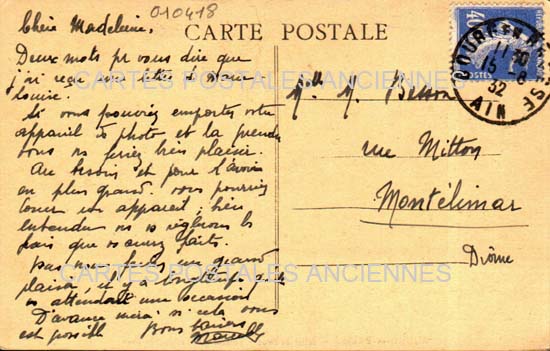 010418
CARTE POSTALE
40
POSTES
BOURG EN BRESSE
15-8
32
AIN
Chère Madeleine,
Deux mots pr vous dire que
j'ai reçu une lettre de
Louise.
Si vous pouviez emporter votre
appareil à photo et la prendre
vous ns feriez bien plaisir.
Au besoin est pour l'avoir
en plus grand. vous pourriez
votre appareil, bien
entendu ns vs règlerons les
frais que vs aurez faits.
Cela me fait un grand
plaisir, il y a longtemps que
vs attendait une occasion
D'avance merci si cela vous
est possible Bons baisers
Marcelle
Mlle M. Besson
rue Mitton
Montélimar
Drôme
CARTES POSTALES ANCIENNES
CARTES POSTALES ANCIENNES